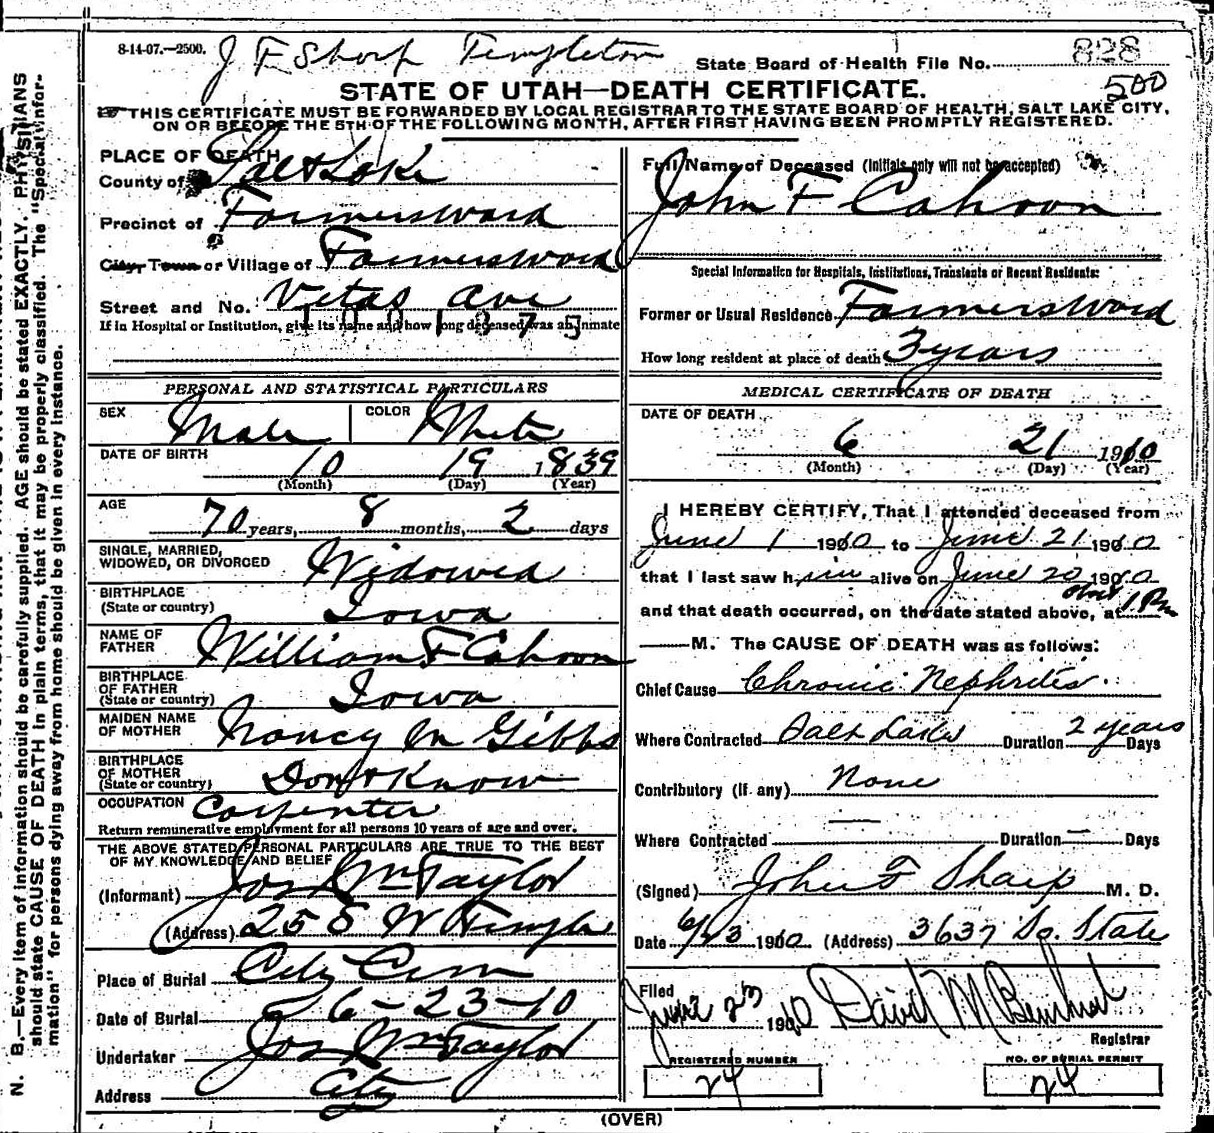 8-14-07.—2500.
J F Sharp Templeton
State Board of Health File No. 828
500
STATE OF UTAH—DEATH CERTIFICATE.
THIS CERTIFICATE MUST BE FORWARDED BY LOCAL REGISTRAR TO THE STATE BOARD OF HEALTH, SALT LAKE CITY,
ON OR BEFORE THE 5TH OF THE FOLLOWING MONTH, AFTER FIRST HAVING BEEN PROMPTLY REGISTERED.
PLACE OF DEATH
County of Salt Lake
Precinct of Farmersward
City, Town or Village of Farmersward
Street and No. Vitas Ave
If in Hospital or Institution, give its name and how long deceased was an Inmate
PERSONAL AND STATISTICAL PARTICULARS
SEX Male COLOR White
DATE OF BIRTH 10 19 1839
(Month) (Day) (Year)
AGE
70 years, 8 months, 2 days
SINGLE, MARRIED,
WIDOWED, OR DIVORCED Widowed
BIRTHPLACE
(State or country) Iowa
NAME OF
FATHER William F Cahoon
BIRTHPLACE
OF FATHER
(State or country) Iowa
MAIDEN NAME
OF MOTHER Nancy M Gibbs
BIRTHPLACE
OF MOTHER
(State or country) Don't Know
OCCUPATION Carpenter
Return remunerative employment for all persons 10 years of age and over.
THE ABOVE STATED PERSONAL PARTICULARS ARE TRUE TO THE BEST
OF MY KNOWLEDGE AND BELIEF
(Informant) Jos Wm Taylor
(Address) 25 S W Temple
Place of Burial City Cem
Date of Burial 6-23-10
Undertaker Jos Wm Taylor
Address City
Full Name of Deceased (Initials only will not be accepted)
John F Cahoon
Special Information for Hospitals, Institutions, Transients or Recent Residents:
Former or Usual Residence Farmersward
How long resident at place of death 3 years
MEDICAL CERTIFICATE OF DEATH
DATE OF DEATH
6 21 1910
(Month) (Day) (Year)
I HEREBY CERTIFY, That I attended deceased from
June 1 1910 to June 21 1910
that I last saw him alive on June 20 1910
and that death occurred, on the date stated above, at about 1 Pm
M. The CAUSE OF DEATH was as follows:
Chief Cause Chronic Nephritis
Where Contracted Salt Lake Duration 2 years Days
Contributory (if any) None
Where Contracted — Duration — Days
(Signed) John F Sharp M. D.
Date 6/23 1910 (Address) 3637 So. State
Filed
June 23 1910 David M
Registrar
REGISTERED NUMBER
24
NO. OF BURIAL PERMIT
24
(OVER)
N. B.—Every item of information should be carefully supplied. AGE should be stated EXACTLY. PHYSICIANS
should state CAUSE OF DEATH in plain terms, that it may be properly classified. The "Special Infor-
mation" for persons dying away from home should be given in every instance.